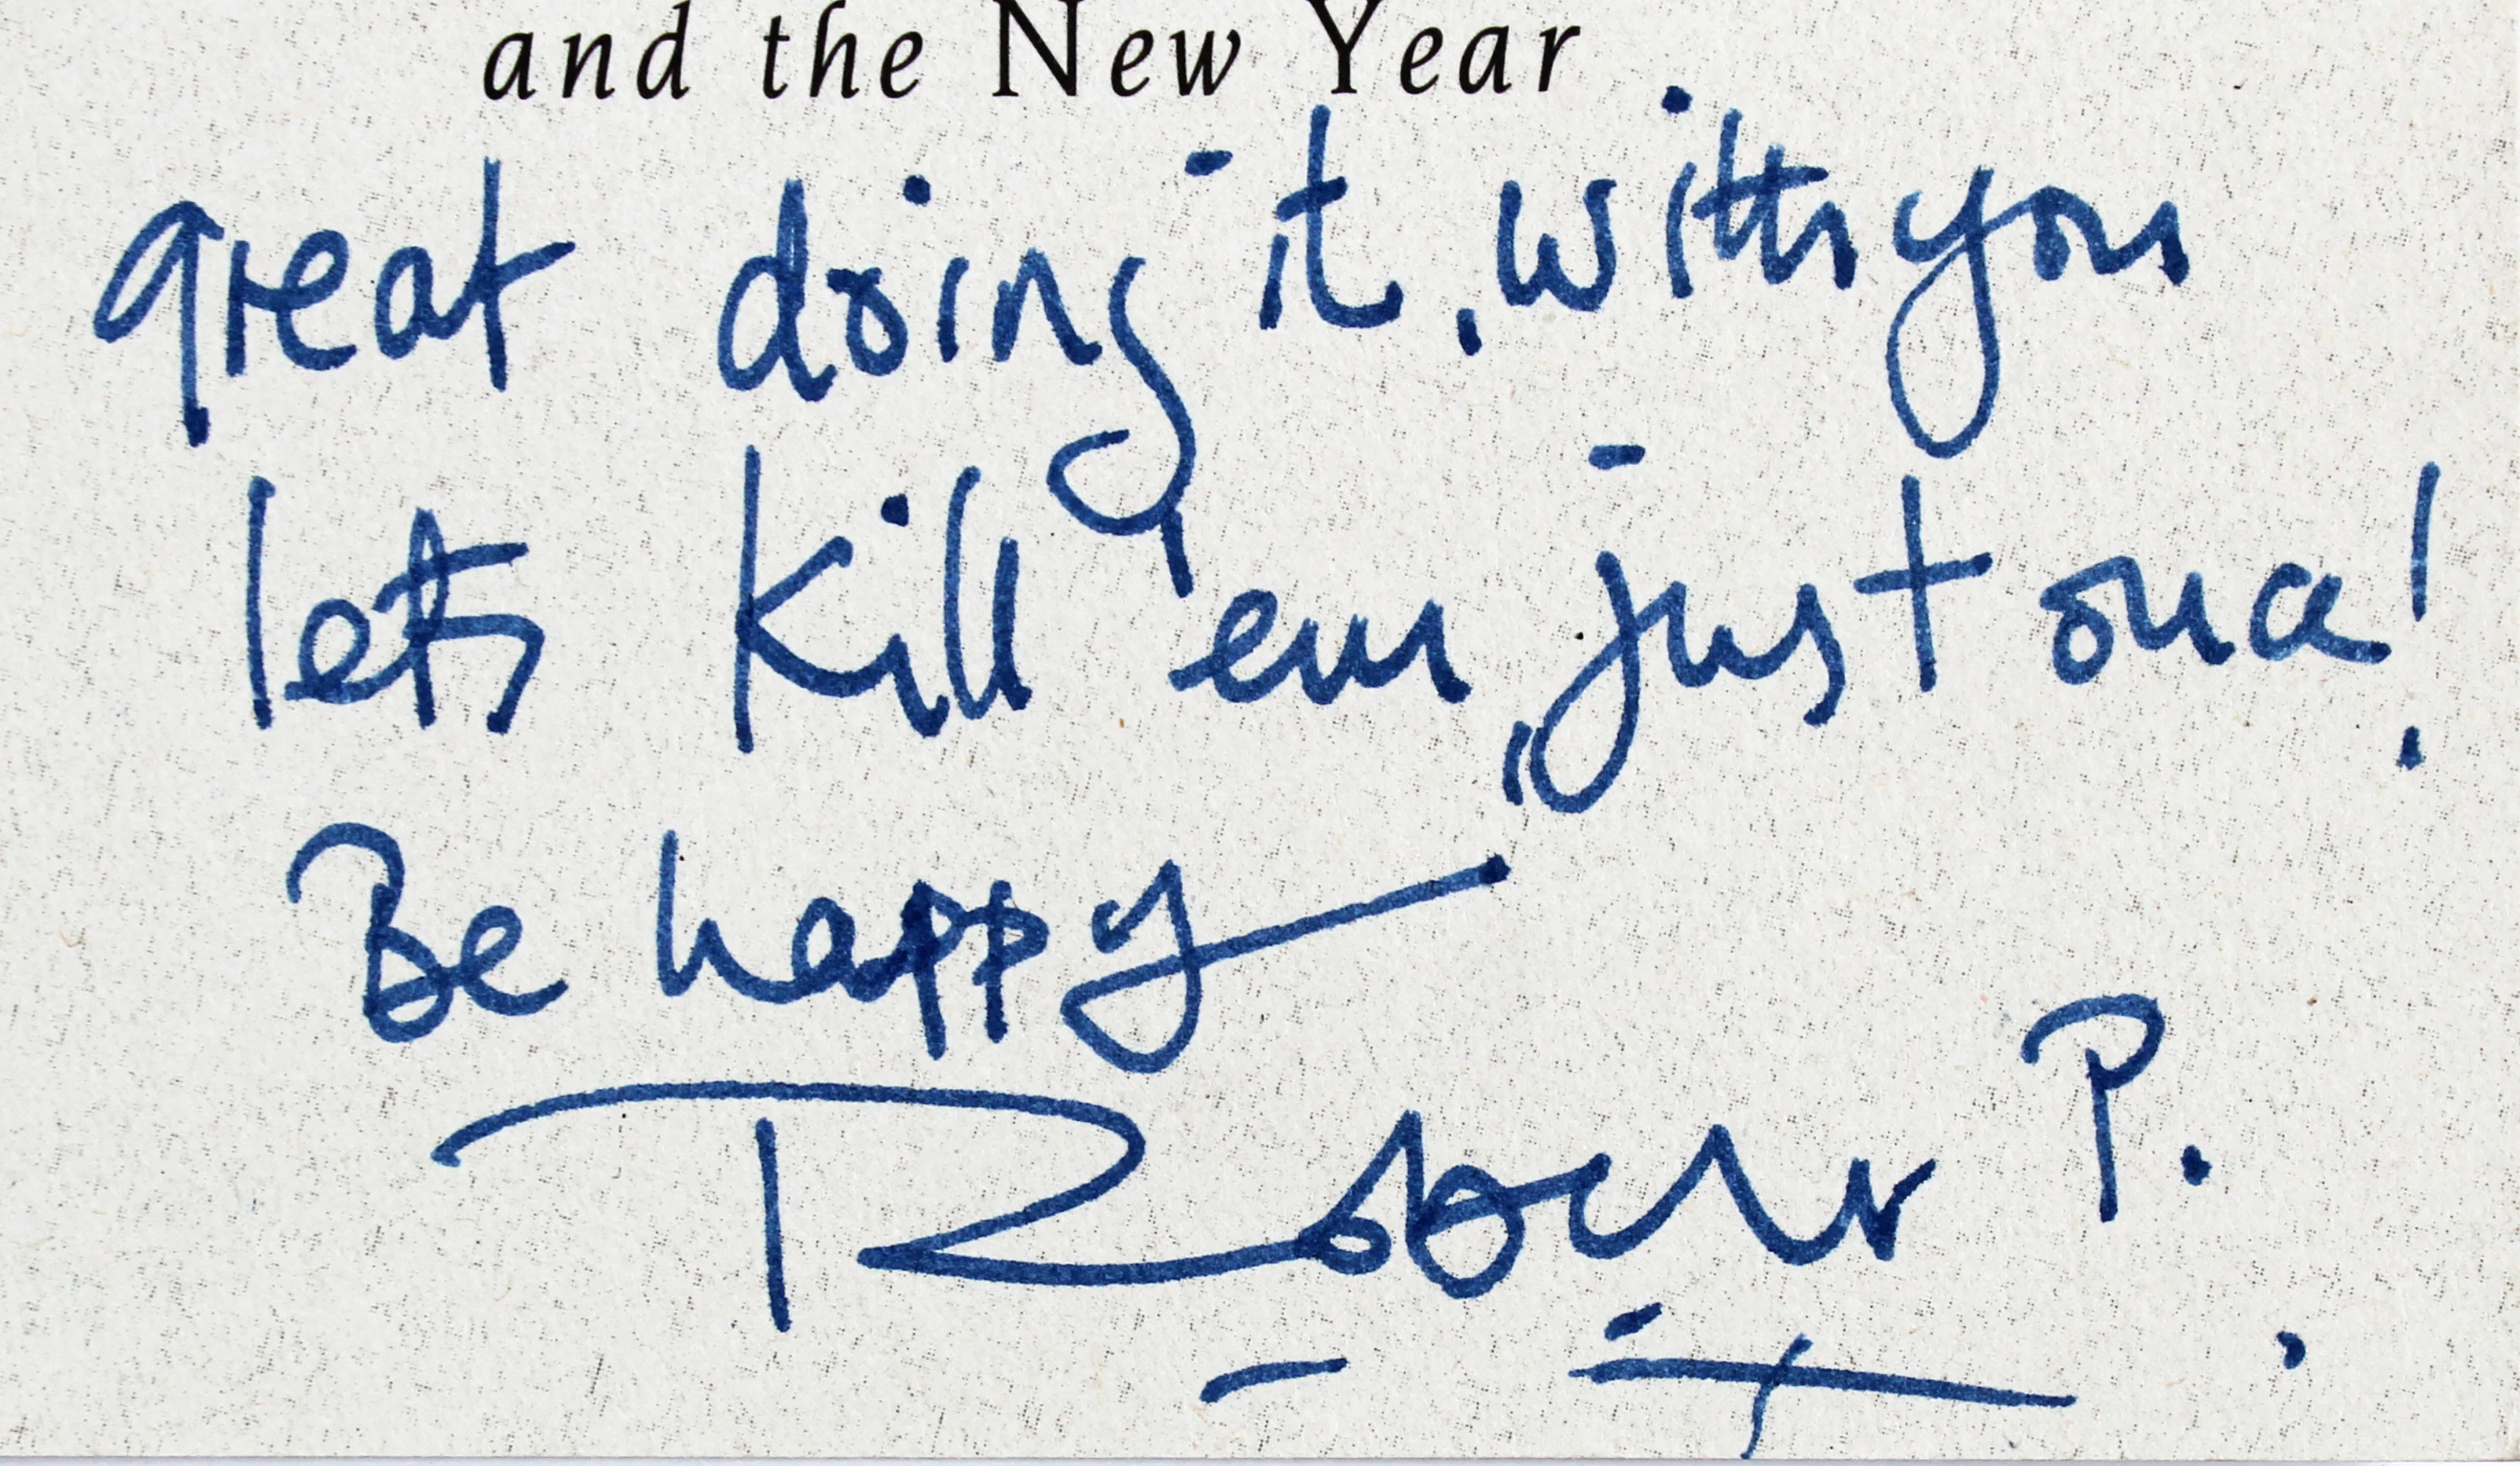 and the New Year
great doing it, with you
lets kill 'em, just once!
Be happy
Robert P.